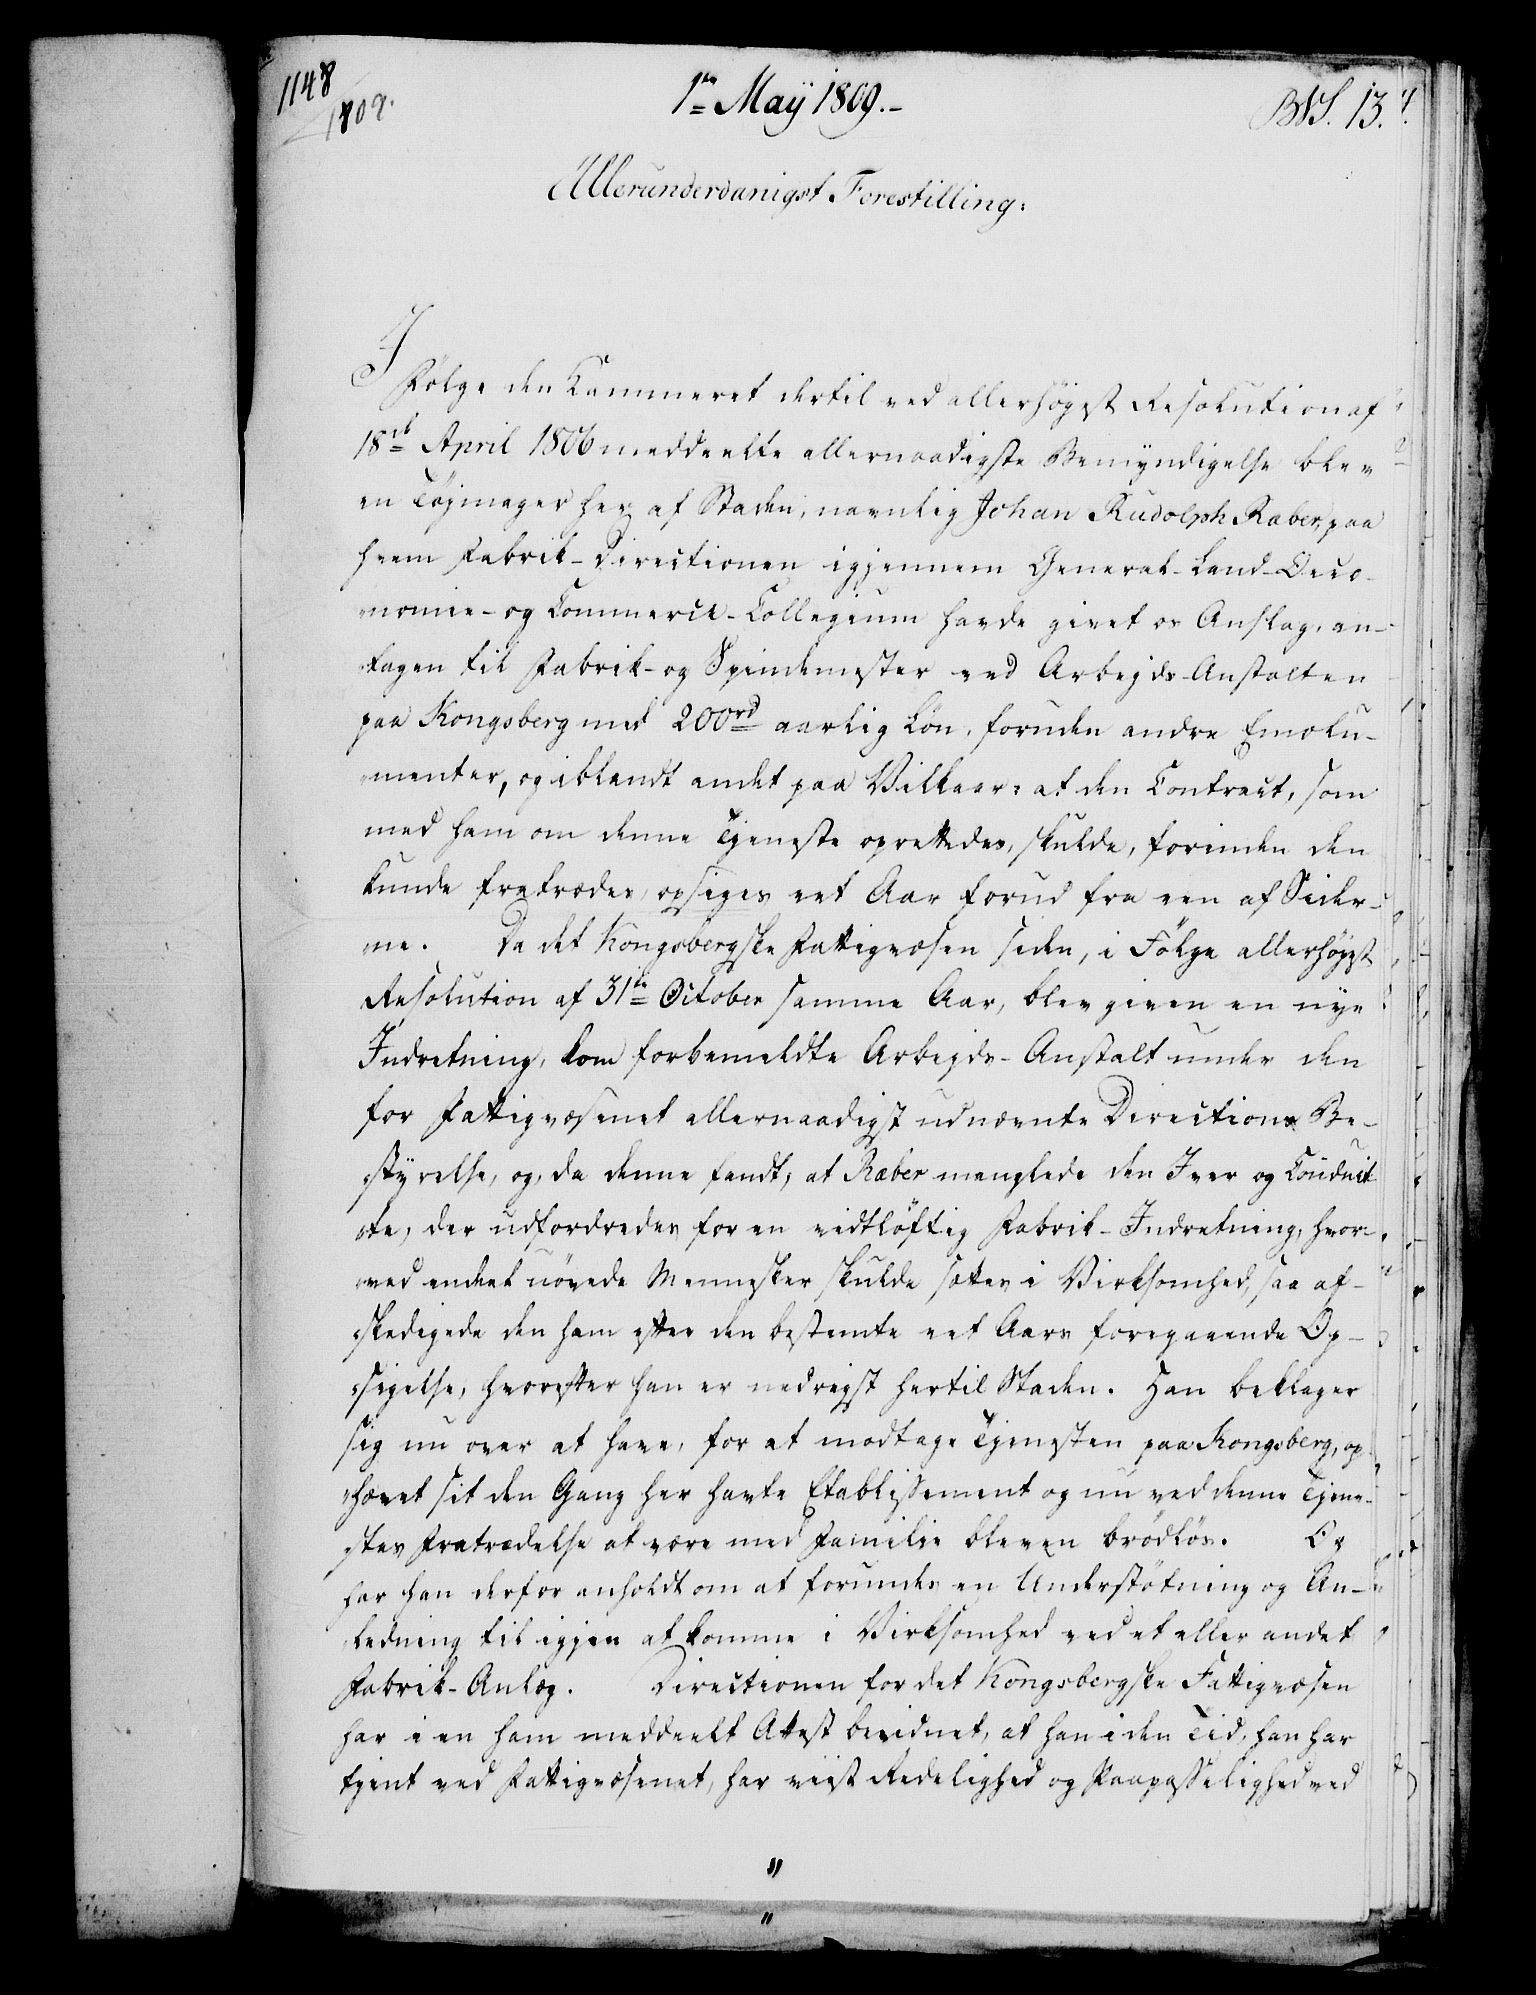 1148
1809.
1te May 1809.-
BWS. 13. 4.
Allerunderdanigst Forestilling:
I
Følge den Kammeret dertil ved allerhøyst Resolution af
18de April 1806 meddeelte allernaadigste Bemyndigelse blev
en Tøjmager her af Staden, navnlig Johan Rudolph Ræber, paa
hvem Fabrik-Directionen igjennem General-Land-Oeco-
nomie- og Commerce-Collegium havde givet os Anslag, an-
tagen til Fabrik- og Spindemester ved Arbejds-Anstalten
paa Kongsberg med 200rd aarlig Løn, foruden andre Emolu-
menter, og iblandt andet paa Vilkaar: at den Contract, som
med ham om denne Tjeneste oprettedes, skulde, forinden den
kunde fratrædes, opsiges eet Aar forud fra een af Sider-
ne. Da det Kongsbergske Fattigvæsen siden, i Følge allerhøyst
Resolution af 31te October samme Aar, blev given en nye
Indretning, kom forbemeldte Arbejds-Anstalt under den
for Fattigvæsenet allernaadigst udnævnte Directions Be-
styrelse, og, da denne fandt, at Ræber manglede den Iver og Conduit
te, der udfordredes for en vidtløftig Fabrik-Indretning, hvor-
ved endeel uøvede Mennesker skulde sættes i Virksomhed, saa af-
skedigede den ham efter den bestemte eet Aars foregaaende Op-
sigelse, hvorefter han er nedrejst hertil Staden. Han beklager
sig nu over at have, for at modtage Tjenesten paa Kongsberg, op
hævet sit den Gang her havte Etablissement og nu ved denne Tjene-
stes Fratrædelse at være med Familie bleven brødløs. Og
har han derfor anholdt om at forundes en Understøtning og An-
ledning til igjen at komme i Virksomhed ved et eller andet
Fabrik-Anlæg. Directionen for det Kongsbergske Fattigvæsen
har i en ham meddeelt Attest bevidnet, at han i den Tid, han har
tjent ved Fattigvæsenet, har viist Redelighed og Paapasselighed ved